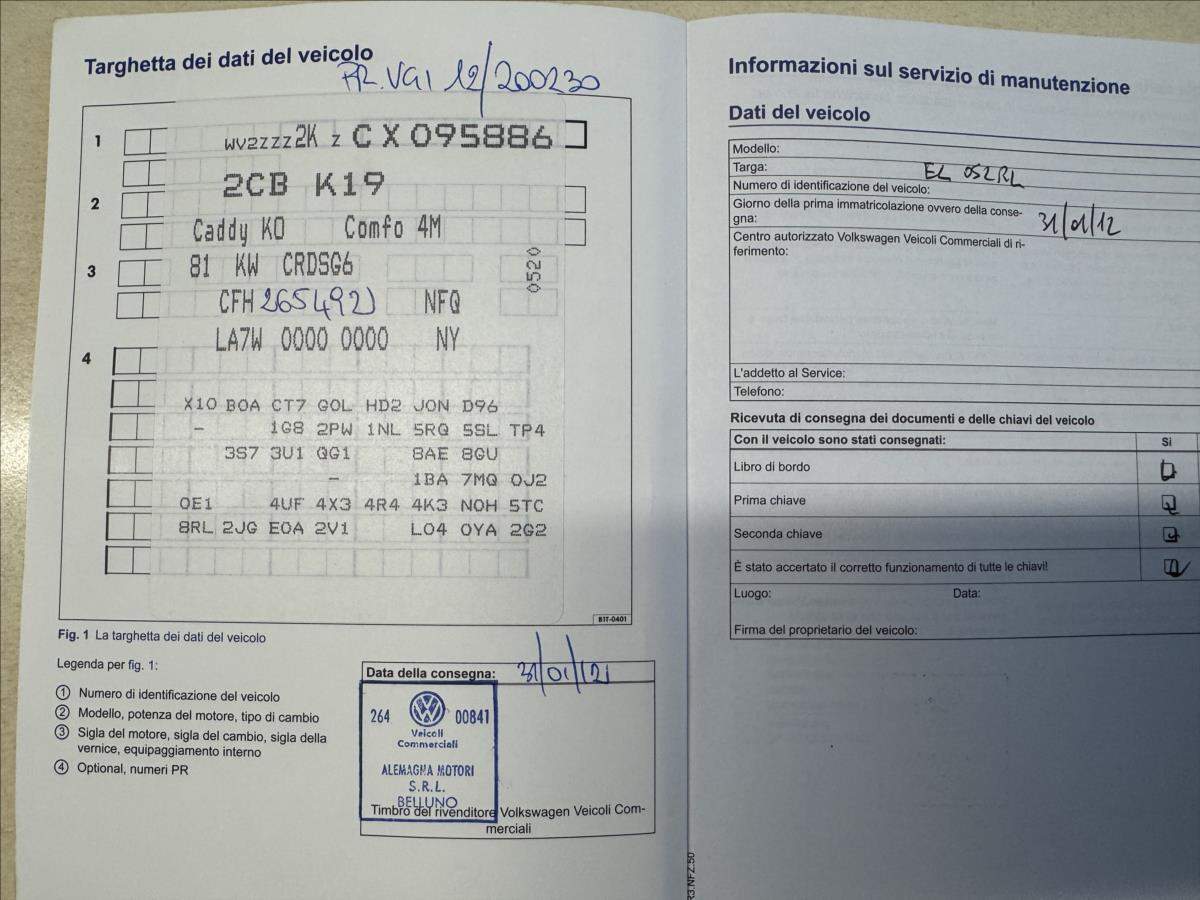 Targhetta dei dati del veicolo
PR.VGI 12/200230
1
WV2ZZZ2K Z CX095886
2CB K19
2
Caddy KO Comfo 4M
3
81 KW CRDSG6
0520
CFH 265492 NFQ
LA7W 0000 0000 NY
4
X10 B0A CT7 G0L HD2 J0N D96
- 1G8 2PW 1NL 5RQ 5SL TP4
3S7 3U1 QG1 8AE 8GU
- 1BA 7MQ 0J2
0E1 4UF 4X3 4R4 4K3 N0H 5TC
8RL 2JG E0A 2V1 L04 0YA 2G2
B1T-0401
Fig. 1 La targhetta dei dati del veicolo
Legenda per fig. 1:
1 Numero di identificazione del veicolo
2 Modello, potenza del motore, tipo di cambio
3 Sigla del motore, sigla del cambio, sigla della
vernice, equipaggiamento interno
4 Optional, numeri PR
Data della consegna: 31/01/12
264 00841
Veicoli
Commerciali
ALEMAGNA MOTORI
S.R.L.
BELLUNO
Timbro del rivenditore Volkswagen Veicoli Com-
merciali
Informazioni sul servizio di manutenzione
Dati del veicolo
Modello:
Targa: EL 052RL
Numero di identificazione del veicolo:
Giorno della prima immatricolazione ovvero della conse-
gna: 31/01/12
Centro autorizzato Volkswagen Veicoli Commerciali di ri-
ferimento:
L'addetto al Service:
Telefono:
Ricevuta di consegna dei documenti e delle chiavi del veicolo
Con il veicolo sono stati consegnati: Sì
Libro di bordo
Prima chiave
Seconda chiave
È stato accertato il corretto funzionamento di tutte le chiavi!
Luogo: Data:
Firma del proprietario del veicolo:
R3.NFZ.50